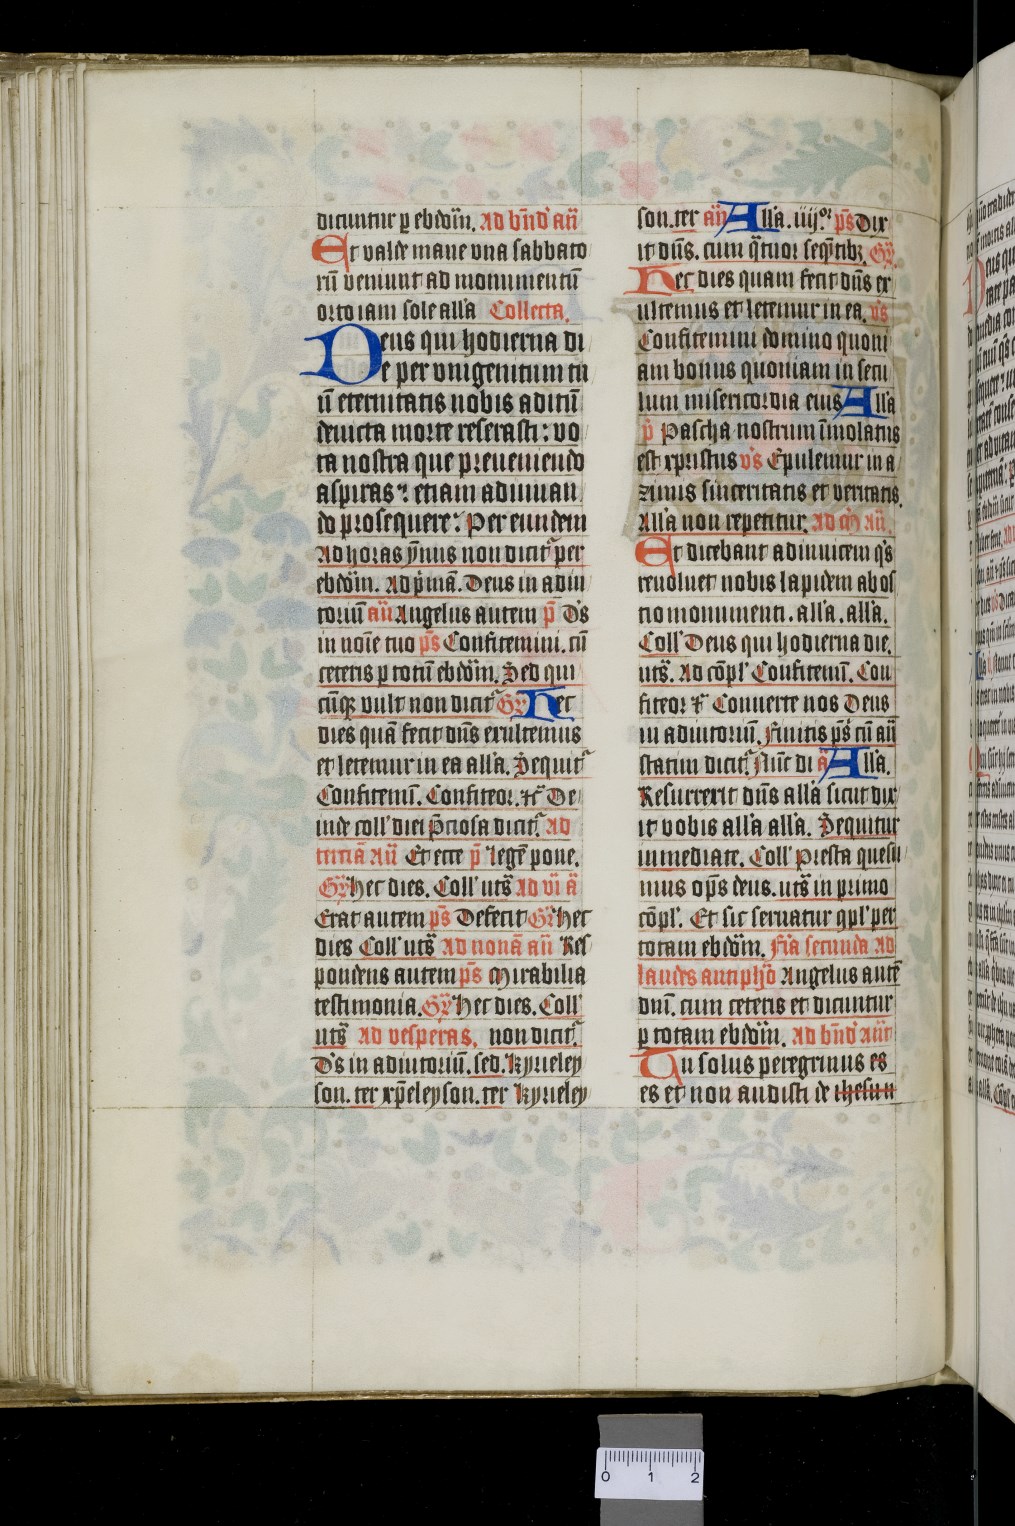 dicuntur ꝑ ebdōm̄. Ad bn̄dˀ an̄
Et valde mane vna sabbato
rū veniunt ad monumentū
orto iam sole all'a Collecta.
Deus qui hodierna di
e per vnigenitum tu
ū eternitatis nobis aditū
deuicta morte reserasti: vo
ta nostra que preueniendo
aspiras: etiam adiuuan
do prosequere: Per eundem
Ad horas ẏm̄nus non dicitˀ per
ebdōm̄. Ad pͥmā. Deus in adiu
toriū an̄ Angelus autem p̄ Ds̄
in noīe tuo ps̄ Confitemini. cū
ceteris ꝑ totū ebdōm̄. Sed qui
cūqꝫ vult non dicitˀ Gꝶ Hec
dies quā fecit dn̄s exultemus
et letemur in ea all'a. Sequitˀ
Confitemī. Confiteor. ⁊c̄ De
inde coll' diei p̄ciosa dicitˀ. Ad
terciā An̄ Et ecce p̄ legē pone.
Gꝶ hec dies. Coll' uts̄ Ad vi ā
Erat autem ps̄ Defecit Gꝶ hec
dies Coll' uts̄ Ad nonā an̄ Res
pondens autem ps̄ Mirabilia
testimonia. Gꝶ hec dies. Coll'
uts̄ Ad vesperas. non dicitˀ
Ds̄ in adiutoriū. sed. kyrieley
son. ter xp̄eleyson. ter kyrieley
son. ter an̄ All'a. iiijᵒʳ ps̄ Dix
it dn̄s. cum qͣtuor seqn̄tibꝫ. Gꝶ.
Hec dies quam fecit dn̄s ex
ultemus et letemur in ea. vs̄
Confitemini domino quoni
am bonus quoniam in secu
lum misericordia eius All'a
p̄ Pascha nostrum īmolatus
est xpristus vs̄ Epulemur in a
zimis sinceritatis et veritatis.
All'a non repetitur. Ad m̄ an̄.
Et dicebant adinuicem qͥs
reuoluet nobis lapidem ab os
tio monumenti. all'a. all'a.
Coll' Deus qui hodierna die.
uts̄. Ad cōpl' Confitemī. Con
fiteor ⁊c̄ Conuerte nos Deus
in adiutoriū. Finitis ps̄ cū an̄
statim dicitˀ. Nūc di ā All'a.
Resurrexit dn̄s all'a sicut dix
it vobis all'a all'a. Sequitur
inmediate. Coll' Presta quesu
mus ops̄ deus. uts̄ in primo
cōpl'. Et sic seruatur qpl' per
totam ebdōm̄. Fīa secunda Ad
laudes antiph̄o Angelus autē
dnī. cum ceteris et dicuntur
ꝑ totam ebdōm̄. Ad bn̄dˀ an̄t
Tu solus peregrinus es
es et non audisti de ihesun